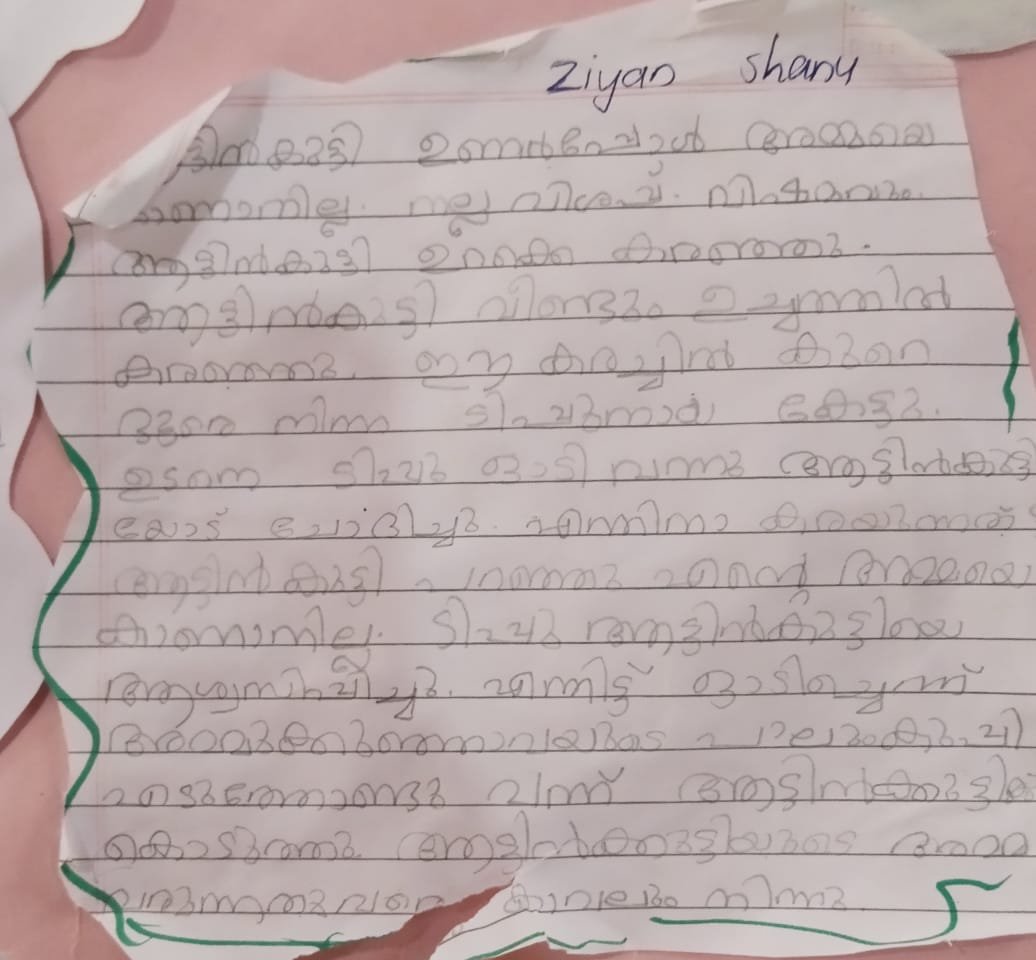 Ziyan Shanu
ട്ടിൻകുട്ടി ഉണർന്നപ്പോൾ അമ്മയെ
കാണാനില്ല. നല്ല വിശപ്പ്.
ആട്ടിൻകുട്ടി ഉറക്കെ കരഞ്ഞു.
ആട്ടിൻകുട്ടി വീണ്ടും ഉച്ചത്തിൽ
കരഞ്ഞു. ഈ കരച്ചിൽ
ടീച്ചറമ്മ കേട്ടു.
ഉടനെ ടീച്ചർ ഓടി വന്നു ആട്ടിൻകുട്ടി
യോട് ചോദിച്ചു. എന്തിനാ കരയുന്നത്
ആട്ടിൻകുട്ടി പറഞ്ഞു എന്റെ അമ്മയെ
കാണാനില്ല. ടീച്ചർ ആട്ടിൻകുട്ടിയെ
ആശ്വസിപ്പിച്ചു. എന്നിട്ട് ഓടിച്ചെന്ന്
എടുത്തോണ്ടു വന്ന് ആട്ടിൻകുട്ടിക്ക്
കൊടുത്തു. ആട്ടിൻകുട്ടിയുടെ അമ്മ
വരുന്നതുവരെ കാവലും നിന്നു